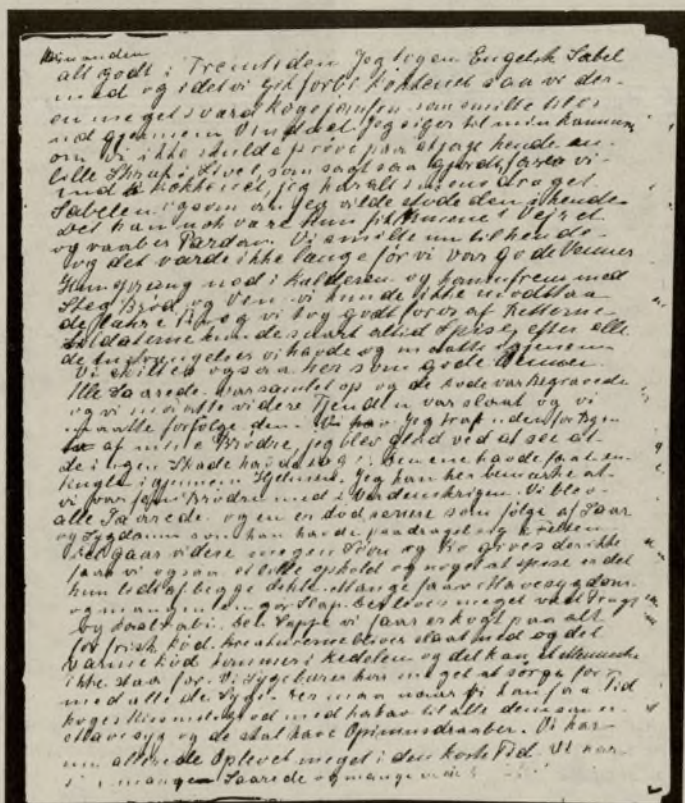 hinanden
alt godt i Fremtiden Jeg tog en Engelsk Sabel
med og idet vi gik forbi Kökkenet saa vi der
en meget svær Kogejomfru som smilte til os
ud gjennem Vinduet Jeg siger til min Kammerat
om vi ikke skulde pröve paa at jage hende en
lille Skræk i Livet, som sagt saa gjordt, foer vi
ind i Kökkenet, jeg har alt saa mens draget
Sabelen igjen om jeg vilde stöde den i hende
Det kan nok være Hun fik Armene i Vejret
og raaber Pardon. Vi smilte nu til hende
og det varde ikke længe för vi var gode Venner
Hun sprang ned i Kalderen og kom frem med
Steg Bröd og Vin vi kunde ikke modstaa
de og vi tog godt for os af Retterne
Soldaterne kunde snart altid Spise, efter alle
de Anstrængelser vi havde og maatte igjennem
Vi skiltes ogsaa her som gode Venner.
Alle Saarede var samlet op og de Döde var Begravede
og vi maatte videre Fjenden var slaaet og vi
maatte forfölge dem. Jeg traf uden for Byen
af mine Brödre, jeg blev glad ved at see at
de ingen Skade havde Den ene havde faaet en
Kugle igjennem Hjelmen. Jeg kan her bemærke at
vi var Brödre med i Verdenskrigen. Vi blev
alle Saarede og en er död senere som fölge af Saar
og Sygdomme som han havde paadraget sig i Felten
Det gaar videre megen Sövn og Ro gives der ikke
faar vi ogsaa et lille ophold og noget at spise er det
kun lidt af begge dele. Mange faar Mavesygdom
og mangen en gör Slap. Der leves meget ved
og Kaalrabi. Den Suppe vi faar er kogt paa alt
for frisk Köd. Kreaturerne bliver slaaet ned og det
varme Köd kommer i Kedelen og det kan et Menneske
ikke staa for. Vi Sygebærer har meget at sörge for
med alle de Syge. Der maa naar vi kan faa Tid
koges med Kakao til alle dem som er
Mavesyg og de skal have Opiumsdraaber. Vi har
nu allerede Oplevet meget i den korte Tid. Vi har
mange Saarede og mange